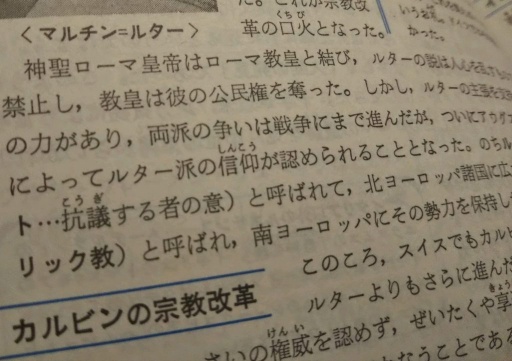 た。これが宗教改
革の口火となった。
かった。
〈マルチン=ルター〉
神聖ローマ皇帝はローマ教皇と結び，ルターの説は人心を乱すもの
禁止し，教皇は彼の公民権を奪った。しかし，ルターの主張を支持
の力があり，両派の争いは戦争にまで進んだが，ついにアウグス
によってルター派の信仰が認められることとなった。のちル
ト…抗議する者の意）と呼ばれて，北ヨーロッパ諸国に広ま
リック教）と呼ばれ，南ヨーロッパにその勢力を保持し
このころ，スイスでもカルビ
カルビンの宗教改革
ルターよりもさらに進んだ
さいの権威を認めず，ぜいたくや享
なうことである